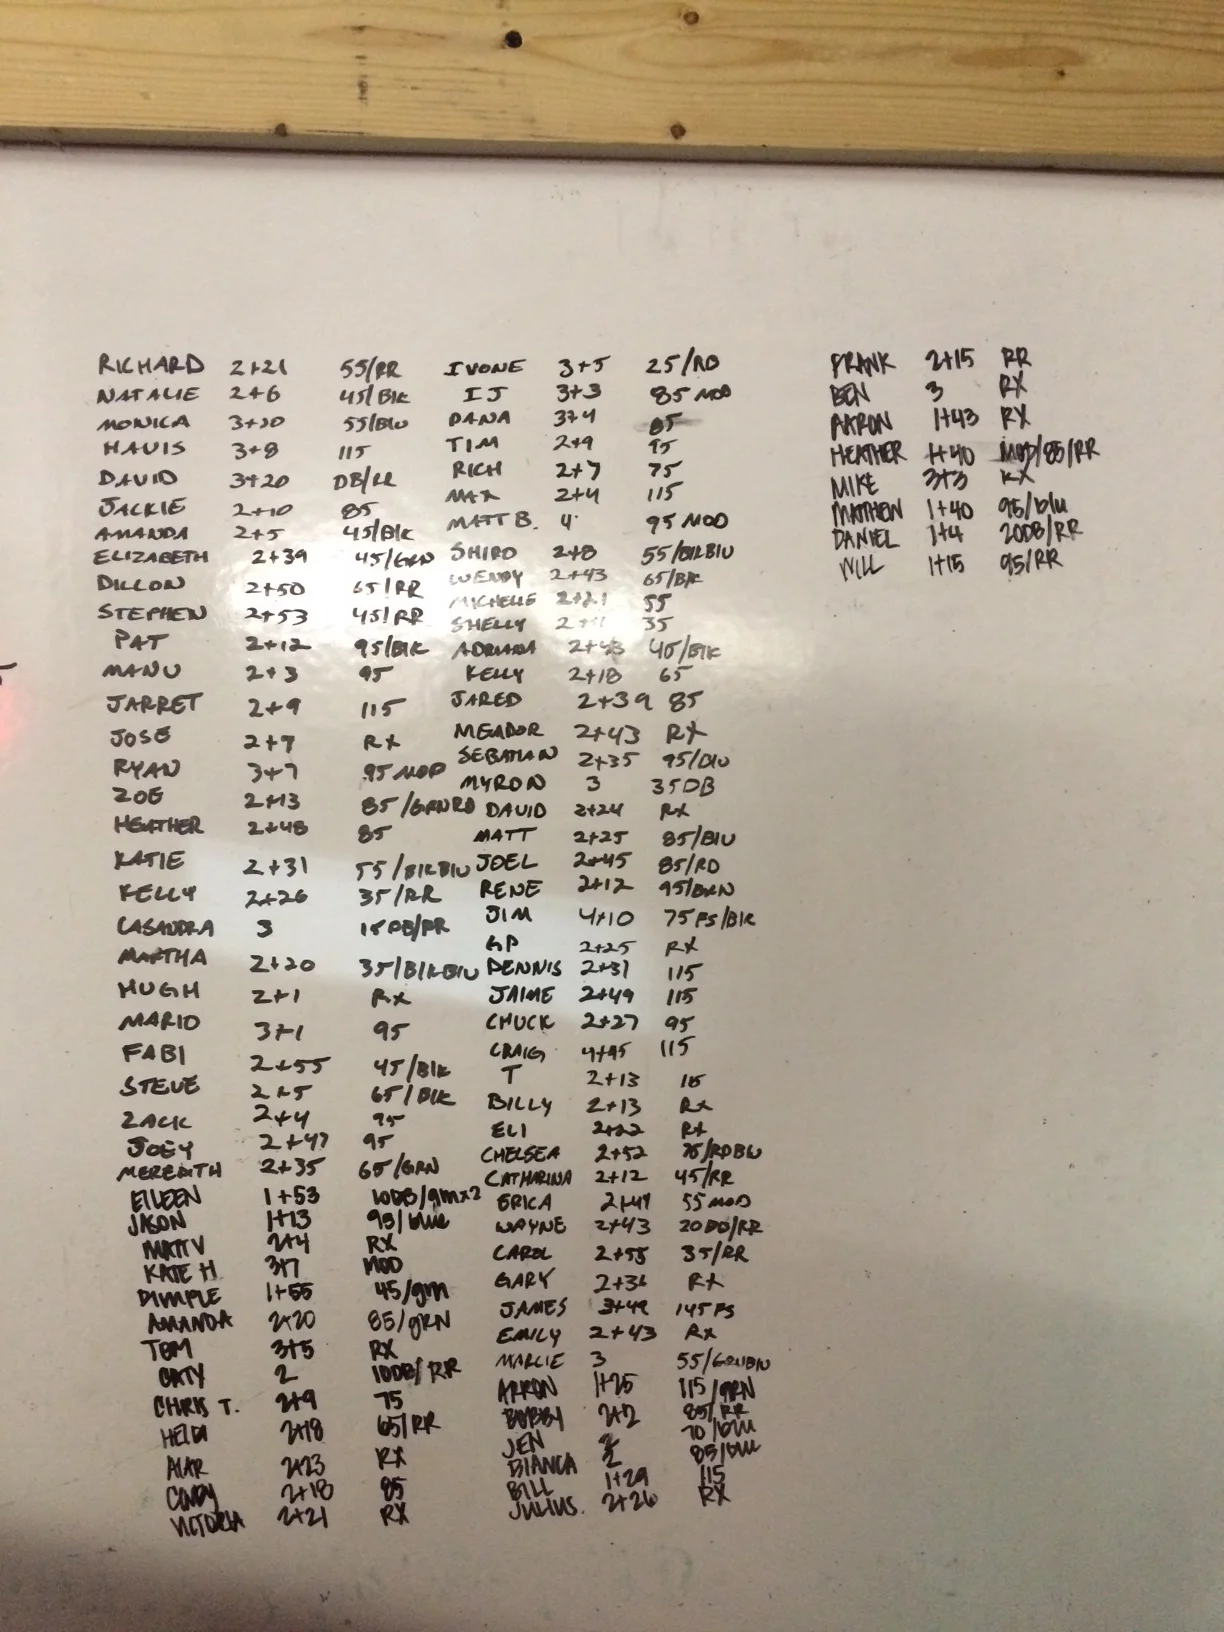 RICHARD 2+21 55/RR
NATALIE 2+6 45/BIK
MONICA 3+20 55/BIU
HAVIS 3+8 115
DAVID 3+20 DB/RR
JACKIE 2+10 85
AMANDA 2+5 45/BIK
ELIZABETH 2+39 45/GRN
DILLON 2+50 65/RR
STEPHEN 2+53 45/RR
PAT 2+12 95/BIK
MANU 2+3 95
JARRET 2+9 115
JOSE 2+7 RX
RYAN 3+7 95 MOD
ZOE 2+13 85/GRNRD
HEATHER 2+48 85
KATIE 2+31 55/BIKBIU
KELLY 2+26 35/RR
CASANDRA 3 15DB/RR
MARTHA 2+20 35/BIKBIU
HUGH 2+1 RX
MARIO 3+1 95
FABI 2+55 45/BIK
STEVE 2+5 65/BIK
ZACK 2+4 95
JOEY 2+47 95
MEREDITH 2+35 65/GRN
EILEEN 1+53 10DB/grnx2
JASON 1+13 95/blue
MATT V 2+4 RX
KATE H 3+7 MOD
DIMPLE 1+55 45/grn
AMANDA 2+20 85/gRN
TOM 3+5 RX
CATY 2 10DB/RR
CHRIS T. 2+9 75
HEIDI 2+18 65/RR
2+23 RX
CINDY 2+18 85
VICTORIA 2+21 RX
IVONE 3+5 25/RD
IJ 3+3 85 MOD
DANA 3+4 85
TIM 2+9 95
RICH 2+7 75
MAX 2+4 115
MATT B. 4 95 MOD
SHIRO 2+8 55/BIKBIU
WENDY 2+43 65/BIK
MICHELLE 2+21 55
SHELLY 35
ADRIANA 2+43 45/BIK
KELLY 2+18 65
JARED 2+39 85
MEADOR 2+43 RX
SEBATIAN 2+35 95/BIU
MYRON 3 35DB
DAVID 2+24 RX
MATT 2+25 85/BIU
JOEL 2+45 85/RD
RENE 2+12 95/GRN
JIM 4+10 75 FS/BIK
GP 2+25 RX
DENNIS 2+31 115
JAIME 2+49 115
CHUCK 2+27 95
CRAIG 4+45 115
T 2+13 115
BILLY 2+13 RX
ELI 2+22 RX
CHELSEA 2+52 75/RDBIU
CATHARINA 2+12 45/RR
ERICA 2+49 55 MOD
WAYNE 2+43 20 DB/RR
CAROL 2+55 35/RR
GARY 2+36 RX
JAMES 3+49 145 FS
EMILY 2+43 RX
MARCIE 3 55/GRNBIU
ARRON 1+25 115/gRN
BOBBY 2+2 85/RR
JEN 2 70/blu
BIANCA 2 85/blu
BILL 1+29 115
JULIUS. 2+26 RX
FRANK 2+15 RR
BEN 3 RX
AARON 1+43 RX
HEATHER 1+40 MOD/85/RR
MIKE 3+3 RX
MATTHEW 1+40 95/blu
DANIEL 1+4 20DB/RR
WILL 1+15 95/RR